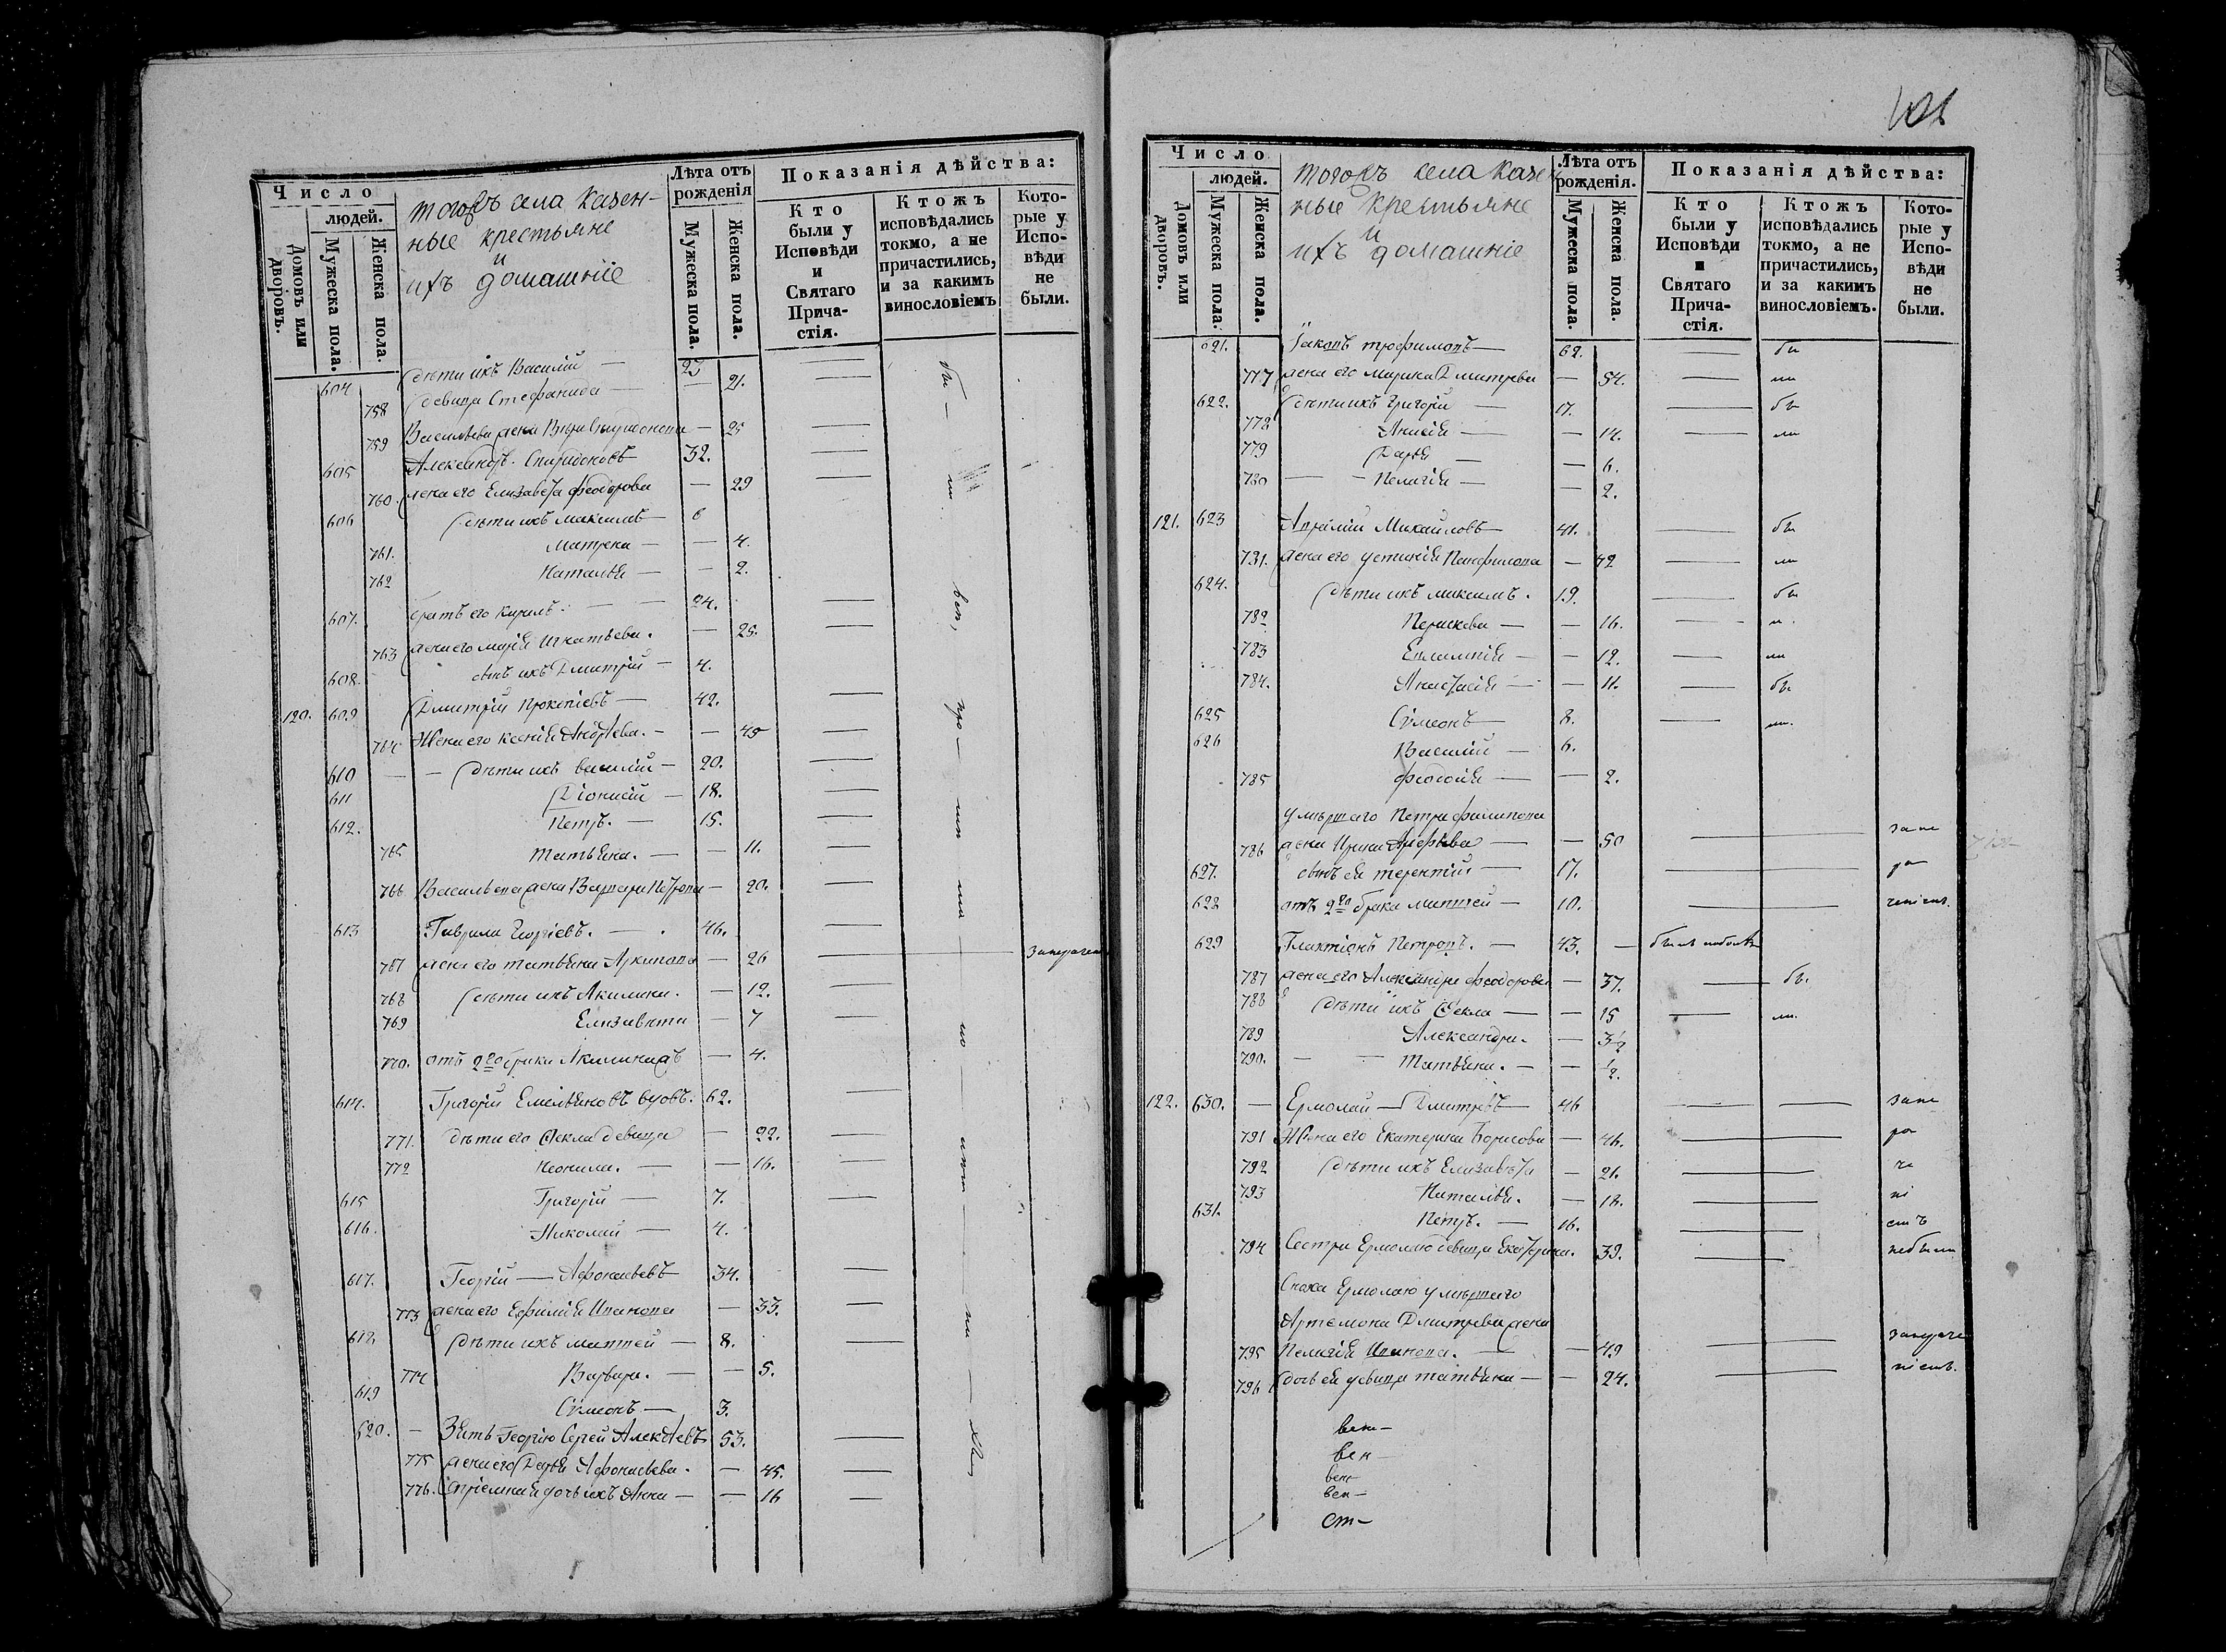 Число
людей.
Домовъ или дворовъ.
Мужеска пола.
Женска пола.
тогожъ села казен-
ные крестьяне
и
ихъ домашніе
Лѣта отъ рожденія
Мужеска пола.
Женска пола.
Показанія дѣйства:
Кто были у Исповѣди и Святаго Прича-стія.
Ктожъ исповѣдались токмо, а не причастились, и за какимъ винословіемъ
Кото-рые у Испо-вѣди не были.
604 дѣти ихъ Василий — 23
758 девица Стефанида — — 21.
759 Васильева жена — 25
605 Александръ Спиридоновъ 32.
760. жена его Елизавета Феодорова — 29
606 дѣти ихъ Максимъ — 6
761. Матрена — — 4.
762 Наталья — — 2.
607. братъ его Кирилъ. — — 24.
763 жена его Марія Игнатьева. — 25.
608. сынъ ихъ Дмитрій — 4.
120. 609 Дмитрій Прокопіевъ — 42.
764 Жена его Ксенія Андреева. — — 45
610 — — дѣти ихъ Василій — 20.
611 Діонисій — 18.
612. Петръ. — 15.
765 Татьяна. — — 11.
766 Васильева жена Варвара Петрова — 20.
613 Гаврила Георгіевъ. — 46.
767 жена его Татьяна Архипова — 26
768 дѣти ихъ Акилина. — 12.
769 Елизавета — 7
770. отъ 2го брака Акилина — 4.
614. Григорій Емельяновъ вдовъ. 62.
771. дѣти его Фекла девица — 22.
772 Неонила. — — 16.
615 Григорій — 7.
616. Николай — 4.
617. Георгій — Афонасьевъ 34.
773 жена его Ефимія Иванова — 33.
618 дѣти ихъ Матвей — 8.
774 Варвара. — — 5.
619 Сѵмеонъ — 3.
620. — Зять Георгію Сергей Алексѣевъ 53.
775 жена его Дарья Афонасьева. — 45.
776. дочь ихъ Анна — — 16
101
Число
людей.
Домовъ или дворовъ.
Мужеска пола.
Женска пола.
тогожъ села казен
ные крестьяне
и
ихъ домашніе
Лѣта отъ рожденія.
Мужеска пола.
Женска пола.
Показанія дѣйства:
Кто были у Исповѣди и Святаго Прича-стія.
Ктожъ исповѣдались токмо, а не причастились, и за какимъ винословіемъ.
Кото-рые у Испо-вѣди не были.
621. Іаковъ Трофимовъ — 62.
777 жена его Марина Дмитрева — 54.
622. дѣти ихъ Григорій — 17.
778 Анисія — — 14.
779 Дарья — — 6.
780 — — Пелагія — — 2.
121. 623 Михайловъ — 41.
781. жена его Устинія Панфилова — 42
624. дѣти ихъ Максимъ. 19.
782 Параскева — — 16.
783 Евлампія — — 12.
784. Анастасія — — 11.
625 Сѵмеонъ — 8.
626 Василий — 6.
785 Феодосія — — 2.
умершаго Петра Филипова
786 жена Ирина — — 50
627. сынъ ея Терентій — 17.
628 отъ 2го брака Матвей — 10.
629 Галактіонъ Петровъ. — 43. —
787 жена его Александра Феодорова — 37.
788 дѣти ихъ Фекла — — 15
789 Александра. — 3 1/2
790. — — Татьяна. — — 1/2.
122. 630. — Ермолай — Дмитревъ — 46
791 Жена его Екатерина Борисова — 46.
792 дѣти ихъ Елизавета — 21.
793 Наталья. — 18.
631. Петръ. — 16.
794 Сестра Ермолаю девица Екатерина. 39.
Сноха Ермолаю умершаго
Артемона Дмитрева жена
795 Пелагія Иванова. — — 49
796 дочь ея девица Татьяна — — 24.
вен—
вен—
вен—
вен—
ст—